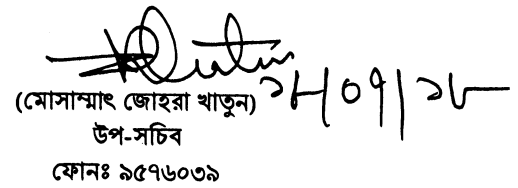 ১৮/০৭/১৮
(মোসাম্মাৎ জোহরা খাতুন)
উপ-সচিব
ফোনঃ ৯৫৭৬০৩৯